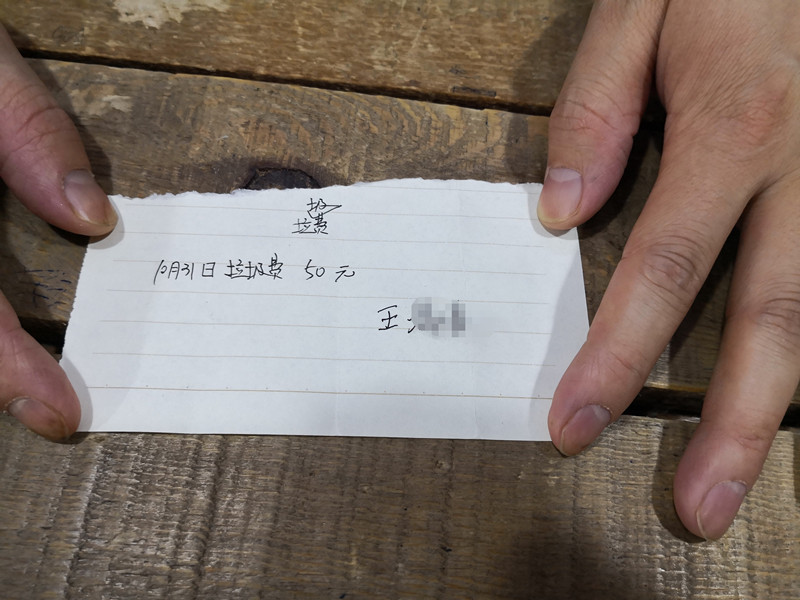 垃圾费
10月31日 垃圾费 50元
王